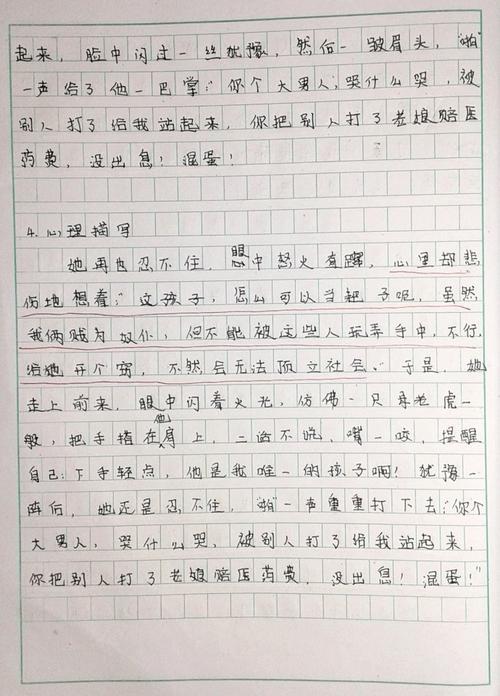 起来，脸中闪过一丝犹豫，然后一皱眉头，“啪”
一声给了他一巴掌：“你个大男人，哭什么哭，被
别人打了给我站起来，你把别人打了老娘赔医
药费，没出息！混蛋！
4.心理描写
她再也忍不住，眼中怒火直蹿，心里却悲
伤地想着：“这孩子，怎么可以当靶子呢，虽然
我俩贱为奴仆，但不能被这些人玩弄手中，不行，
给她开个窍，不然会无法顶立社会。”于是，她
走上前来，眼中闪着火光，仿佛一只母老虎一
般，把手指在他肩上，二话不说，嘴一咬，提醒
自己：下手轻点，他是我唯一的孩子啊！犹豫一
阵后，她还是忍不住，“啪”一声重重打下去：“你个
大男人，哭什么哭，被别人打了给我站起来，
你把别人打了老娘赔医药费，没出息！混蛋！”